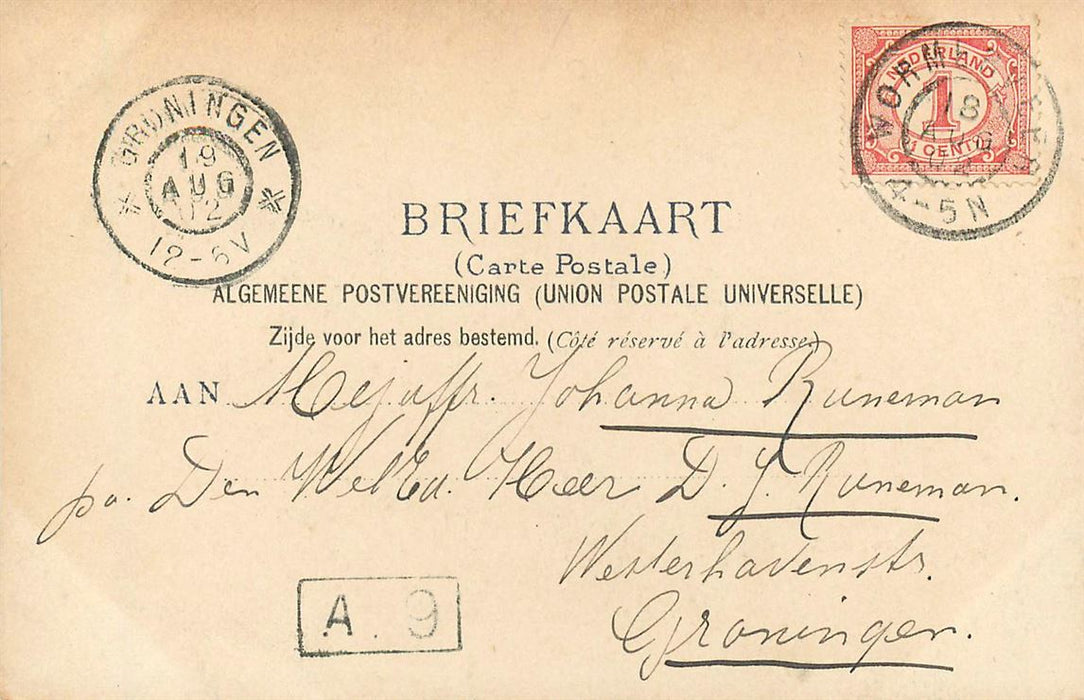 GRONINGEN
19
AUG
02
12-6V
NEDERLAND
1
1 CENT
18
AUG
02
4-5N
BRIEFKAART
(Carte Postale)
ALGEMEENE POSTVEREENIGING (UNION POSTALE UNIVERSELLE)
Zijde voor het adres bestemd. (Côté réservé à l'adresse)
AAN Mejuffr. Johanna Runeman
pa. Den WelEd. Heer D. J. Runeman.
Westerhavenstr.
Groningen.
A. 9